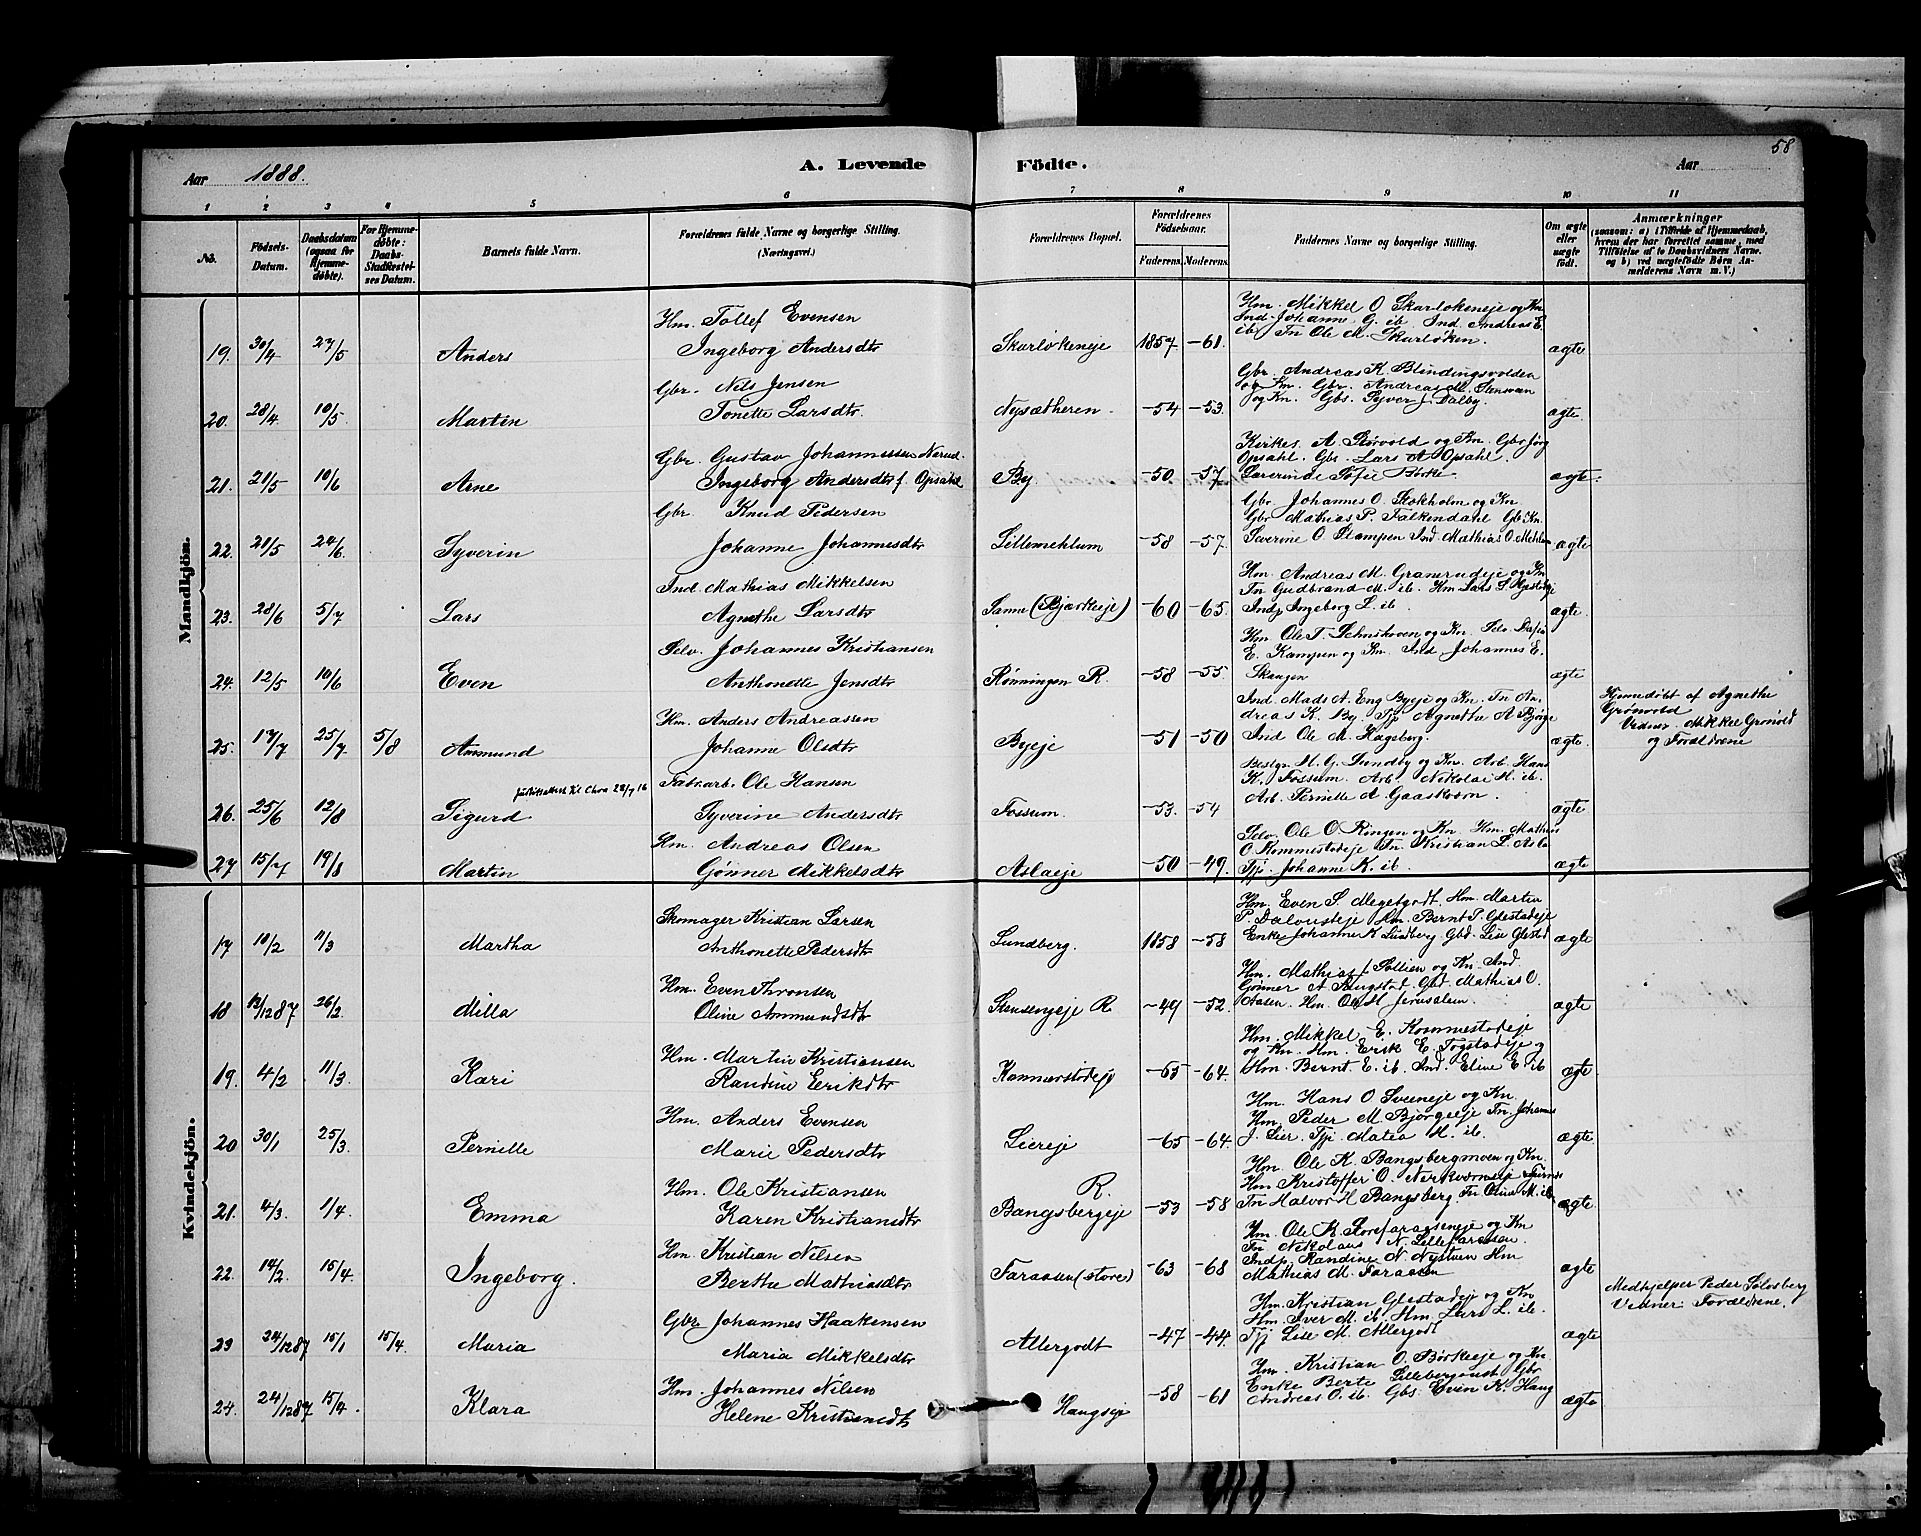 58
Aar 1888.
A. Levende Födte.
Aar
1 2 3 4 5 6 7 8 9 10 11
No. Födsels-Datum. Daabsdatum (ogsaa for Hjemme-döbte). For Hjemme-döbte: Daabs-Stadfæstel-ses Datum. Barnets fulde Navn. Forældrenes fulde Navne og borgerlige Stilling. (Næringsvei.) Forældrenes Bopæl. Forældrenes Födselsaar. Faderens. Moderens. Faddernes Navne og borgerlige Stilling. Om ægte eller uægte födt. Anmærkninger (saasom: a) i Tilfælde af Hjemmedaab, hvem der har forrettet samme, med Tilföielse af to Daabsvidners Navne. og b) ved uægtefödte Börn An-melderens Navn m. V.)
Mandkjön.
Hm. Tollef Evensen
Hm. Mikkel O. Skarløkeneje og Kn
Ind. Johanne G. ib. Ind. Andreas E.
19. 30/4 27/5 Anders Ingeborg Andersdtr Skarløkeneje 1857 -61. ib Tn Ole M. Skarløken. ægte
Gbr. Nils Jensen
Gbr. Andreas K. Blindingsvolden
og Kn. Gbr. Andreas M. Stensvan
20. 28/4 10/5 Martin Tonette Larsdtr. Nysætheren. -54 -53. og Kn. Gbs. Syver J. Dalby. ægte
Gbr. Gustav Johannessen Narud.
Kirkes. A. Størvold og Kn. Gbr Jørg
Opsahl. Gbr. Lars A. Opsahl.
21. 21/5 10/6 Arne Ingeborg Andersdtr f. Opsahl By -50 -57 Lærerinde Sofie Børke ægte
Gbr. Knud Pedersen
Gbr Johannes O. Stokholm og Kn
Gbr Mathias P. Falkendahl Gb Kn.
22. 21/5 24/6 Syverin Johanne Johannesdtr Lillemehlum -58 -57. Severine O. Stampen Ind Mathias O. Mehlum ægte
Ind. Mathias Mikkelsen
Hm. Andreas M. Granerudeje og Kn
Tn Gudbrand M. ib. Hm Lars S.
23. 28/6 5/7 Lars Agnethe Larsdtr Sanne (Bjørkeeje) -60 -65. Indp Ingeborg L. ib. ægte
Selv. Johannes Kristiansen
Hm Ole T. og Kn. Selv.
E. Kampen og Kn. Ind Johannes E.
24. 12/5 10/6 Even Anthonette Jensdtr Rønningen R. -58 -55 Skangen ægte
Hm. Anders Andreassen
Ind. Mads A. Eng Byeje og Kn. Tn An-
dreas K. By Tjp Agnethe A Bjørge
25. 17/7 25/7 5/8 Ammund Johanne Olsdtr Byeje -51 -50 Ind Ole M. Hageberg. ægte
Hjemmedøbt af Agnethe
Grønvold
Vidner Mikkel Grønvold
og Forældrene
Fabr.arb. Ole Hansen
Bestyr H. G. Sundby og Kn. Arb. Hans
K. Fossum. Arb. Nikolai H. ib.
26. 25/6 12/8 Sigurd Syverine Andersdtr Fossum. -53. -54 Arb. Pernille A Gaaskvern. ægte
Hm. Andreas Olsen
Selv. Ole O. Ringen og Kn. Hm. Mathias
O Kommestadeje Tn Kristian L. Asla
27 15/7 19/8 Martin Gønner Mikkelsdtr Aslaeje -50 -49. Tjp. Johanne K. ib. ægte
Kvindekjön.
Skomager Kristian Larsen
Hm. Even S. Megetgodt. Hm. Martin
P. Dalousteje Hm. Bernt P. Glestadeje
17 10/2 11/3 Martha Anthonette Pedersdtr Lundberg. 1858 -58 Enke Johanne K Lundberg Gbd. Lise Glestad ægte
Hm. Even Thronsen
Hm. Mathias J. Sollien og Kn. Ind.
Gønner A. Gbr Mathias O.
18 13/12 87 26/2 Milla Oline Ammundsdtr Stensengeje R -49 -52. Aasen. Hm. Ole H Jerusalem. ægte
Hm. Martin Kristiansen
Hm. Mikkel E. Kommestadeje
og Kn. Hm. Erik E. Togstadeje og
19. 4/2 11/3. Kari Randine Eriksdtr Kommerstadeje -65 -64. Hm. Bernt E. ib. Ind. Eline E. ib ægte
Hm. Anders Evensen
Hm. Hans O Sveeneje og Kn.
Hm. Peder M Bjørgeeje Tn. Johannes
20 30/1 25/3. Pernille Marie Pedersdtr Liereje -65 -64. J. Lier. Tjp. Matea H. ib. ægte
Hm. Ole Kristiansen
Hm. Ole K. Bangsbergmoen og Kn.
Hm Kristoffer O.
21. 4/3. 1/4. Emma Karen Kristiansdtr Bangsbergeje R. -53 -58 Tn Halvor H Bangsberg. Tn Oline M. ib ægte
Hm. Kristian Nilsen
Hm. Ole K. Storefaraaseneje og Kn
Tn Nikolaus N. Lillefaraasen.
22. 14/2. 15/4. Ingeborg. Berthe Mathiasdtr Faraasen (store) -63 -68 Indp. Randine N. Nystuen Hm
Mathias M. Faraasen ægte
Gbr Johannes Haakensen
Hm. Kristian Glestadeje og Kn
Hm. Iver M. ib. Hm Lars L. ib.
23 24/12 87 15/1 15/4. Maria Maria Mikkelsdtr Allergodt -47 -44. Tjp Lise M. Allergodt ægte
Medhjelper Peder Solosberg
Vidner Forældrene.
Hm. Johannes Nilsen
Hm. Kristian O. Børkeeje og Kn.
Enke Berte Gbr
24. 24/12 87 15/4. Klara Helene Kristiansdtr Haugseje -58 -61 Andreas O. ib. Gbs. Even K. Haug ægte